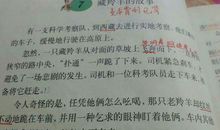 7
藏羚羊的故事
有一支科学考察队,到西藏去进行实地考察,他们
的车子,缓慢地行驶在高原上。
忽然,一只藏羚羊从对面的草坡上
狭窄的路中央,“扑通”一声跪了下来。司机紧急刹
避免了一场悲剧的发生。司机和一位科考队员走下车来,
备将它赶走。
令人奇怪的是,任凭他俩怎么吆喝,那只老羚羊却
不动地跪在车前,并用一种乞求的眼神盯着他俩,车内其他